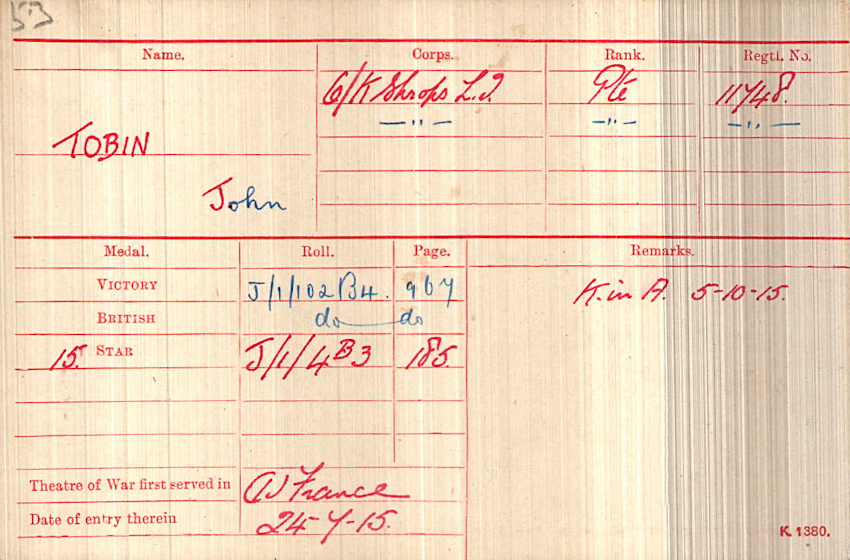 53
Name. Corps. Rank. Regtl. No.
6/K Shrops L.I. Pte 11748.
—"— —"— —"—
TOBIN
John
Medal. Roll. Page. Remarks.
VICTORY J/1/102B4. 967 K. in A. 5-10-15.
BRITISH do do
15 STAR J/1/4B3 185.
Theatre of War first served in (1) France
Date of entry therein 24-7-15.
K. 1380.